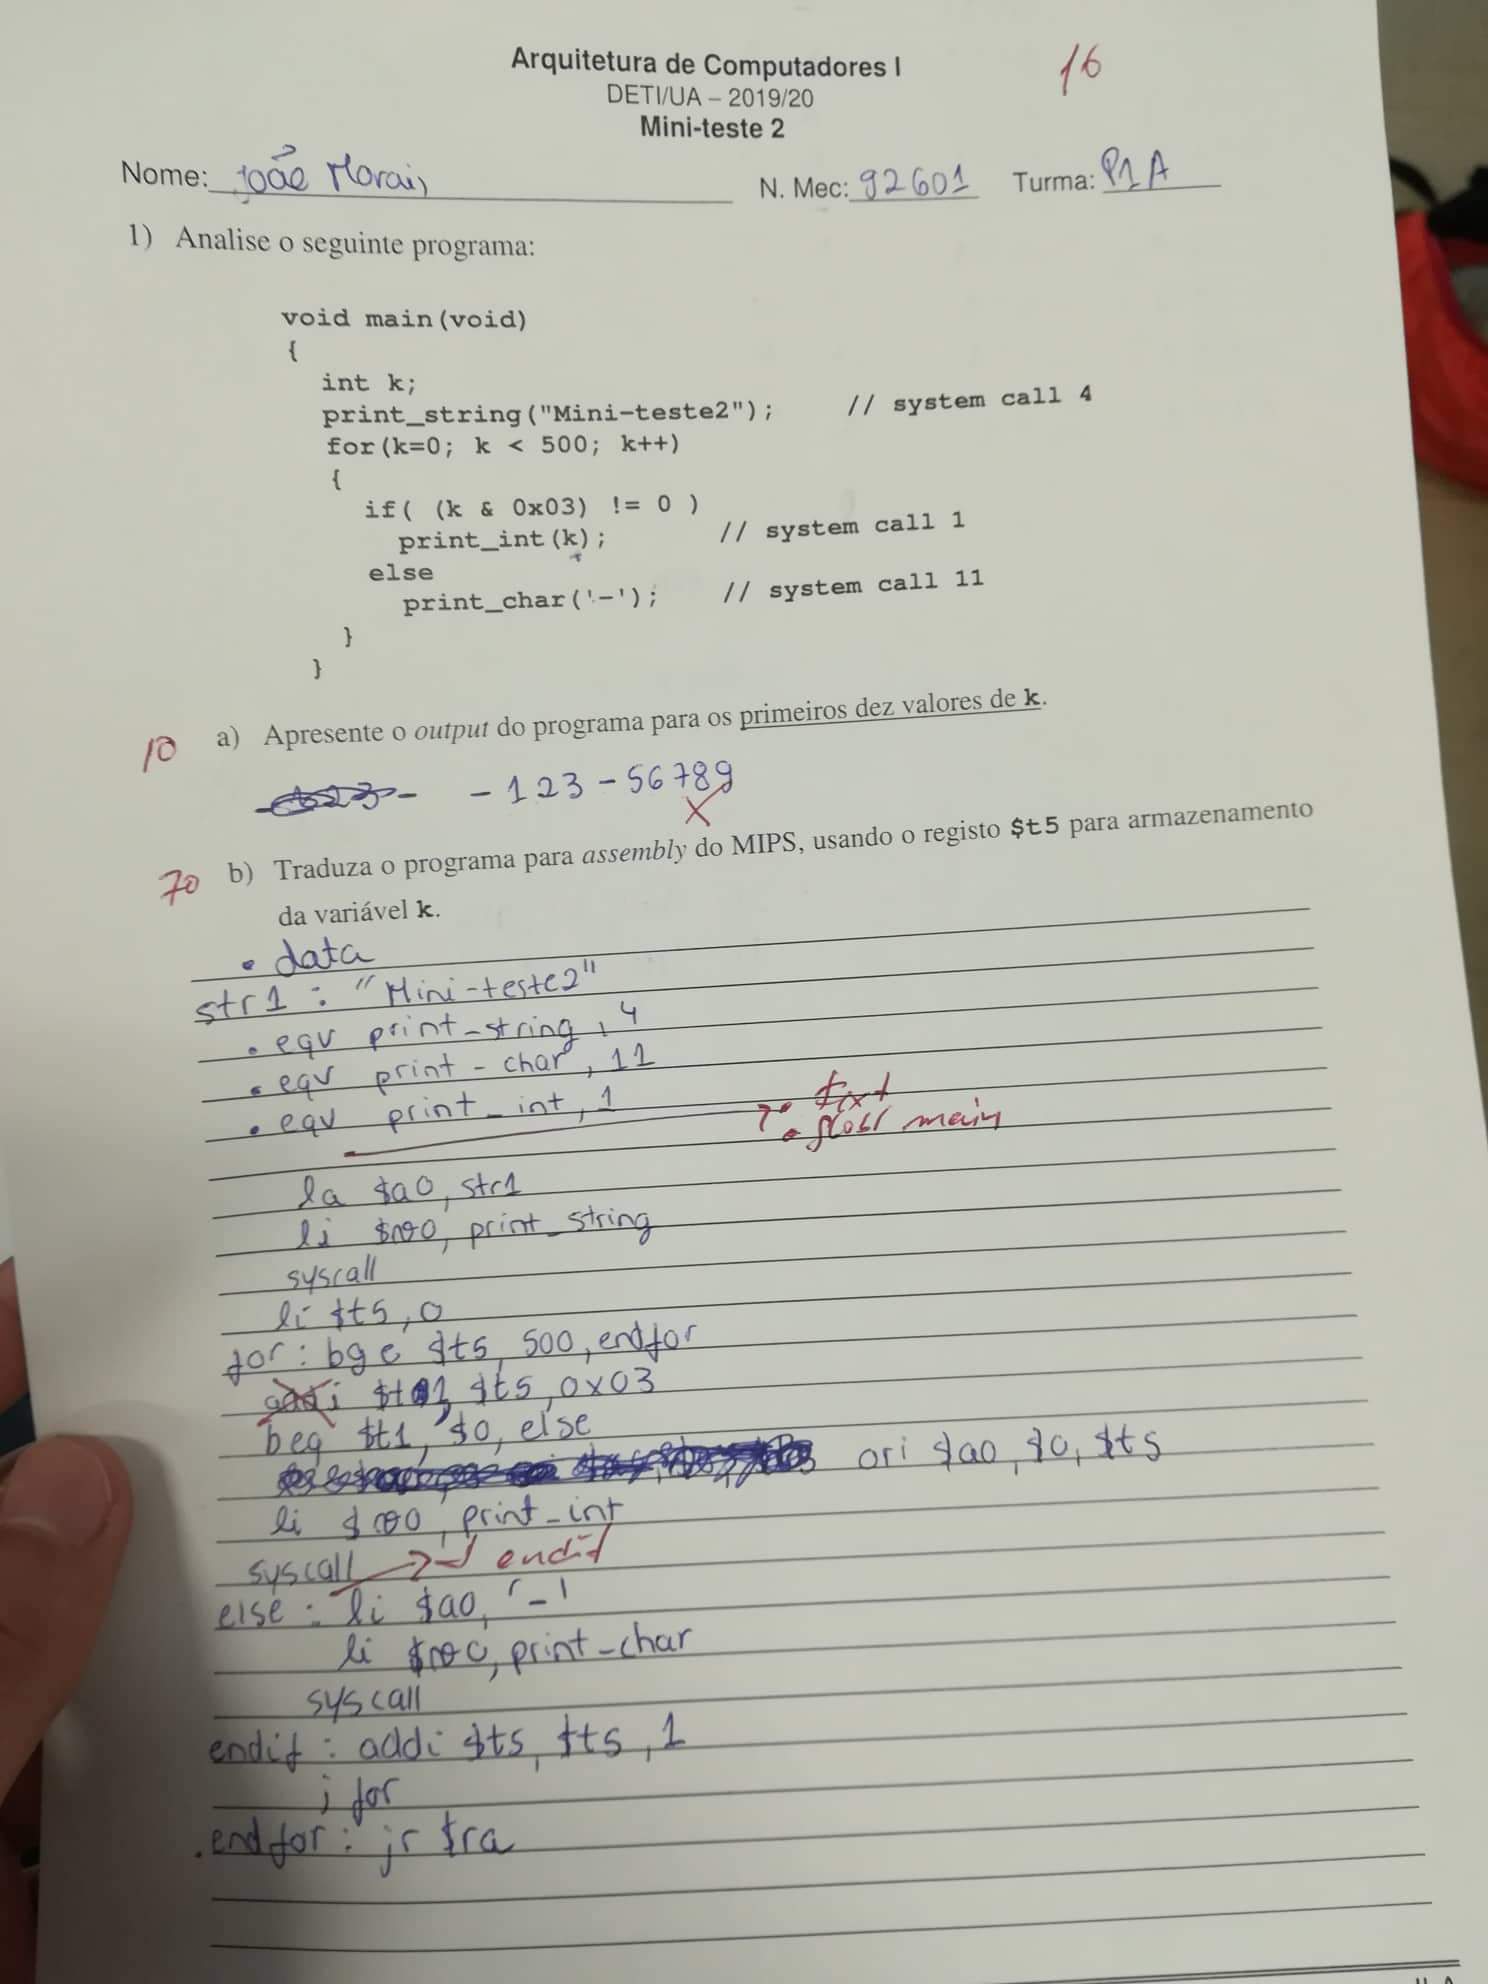 Arquitetura de Computadores I
16
DETI/UA – 2019/20
Mini-teste 2
Nome: João Morais N. Mec: 92601 Turma: P1A
1) Analise o seguinte programa:
void main(void)
{
int k;
print_string("Mini-teste2"); // system call 4
for(k=0; k < 500; k++)
{
if( (k & 0x03) != 0 )
print_int(k); // system call 1
else
print_char('-'); // system call 11
}
}
10 a) Apresente o output do programa para os primeiros dez valores de k.
-123-56789
X
70 b) Traduza o programa para assembly do MIPS, usando o registo $t5 para armazenamento
da variável k.
.data
str1 : "Mini-teste2"
.eqv print-string, 4
.eqv print-char, 11
.eqv print_int, 1
. text
. globl main
la $a0, str1
li $v0, print_string
syscall
li $t5, 0
for: bge $t5, 500, endfor
addi $t1, $t5, 0x03
beq $t1, $0, else
ori $a0, $0, $t5
li $v0, print_int
syscall → j endif
else: li $a0, '-'
li $v0, print-char
syscall
endif: addi $t5, $t5, 1
j for
endfor: jr $ra